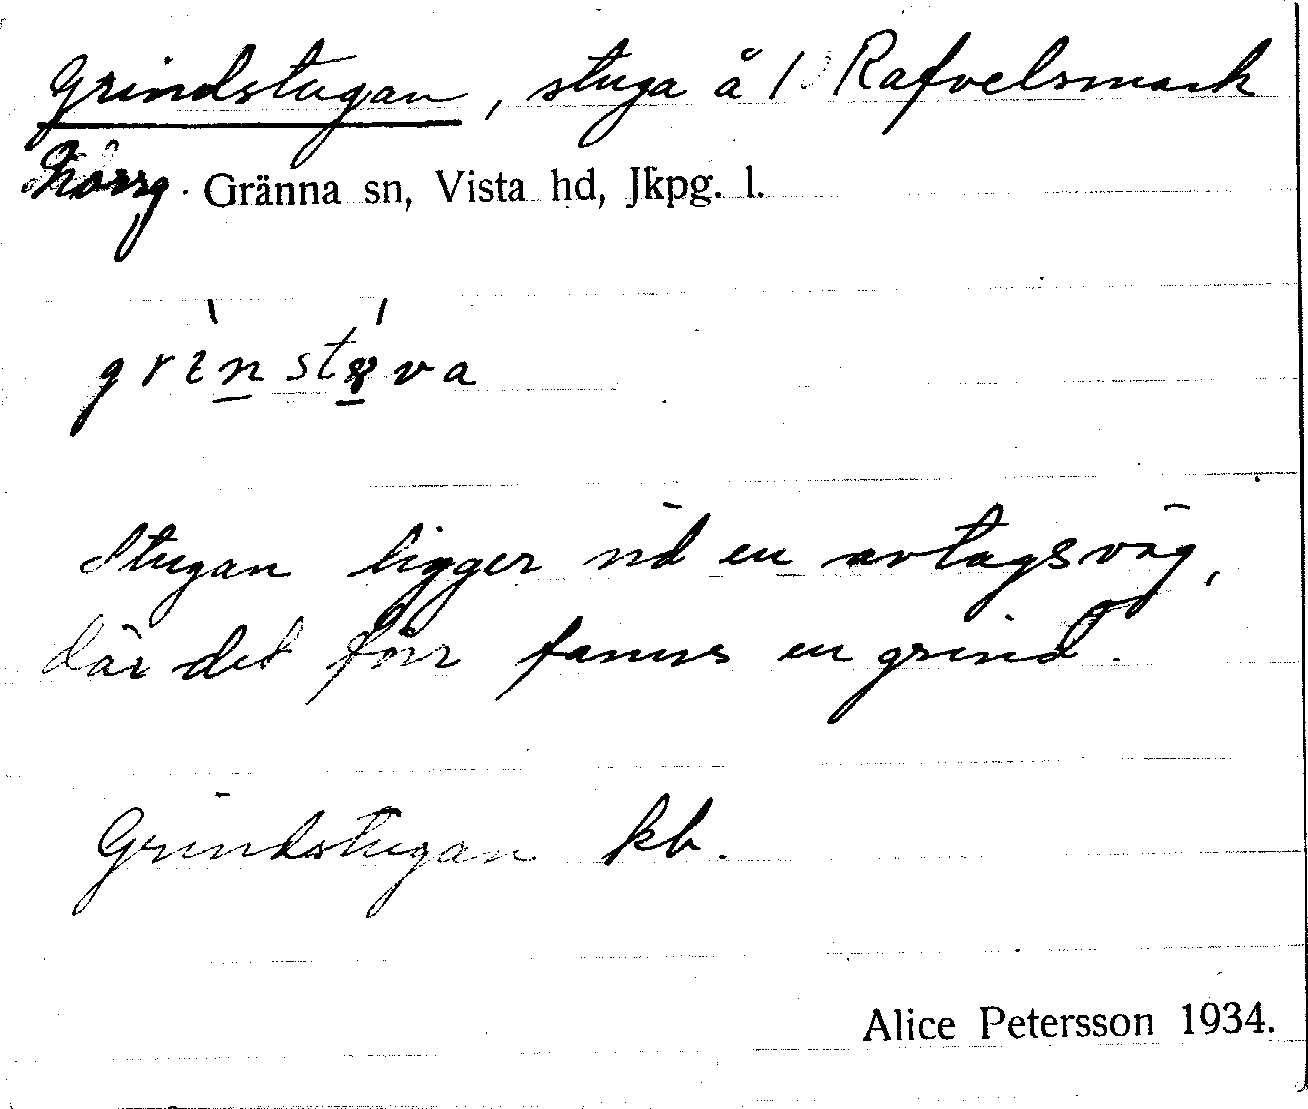 Grindstugan, stuga å 1 Rafvelsmark
Norrg. Gränna sn, Vista hd, Jkpg. l.
grinstuva
Stugan ligger vid en avtagsväg,
där det förr fanns en grind.
Grindstugan kb.
Alice Petersson 1934.